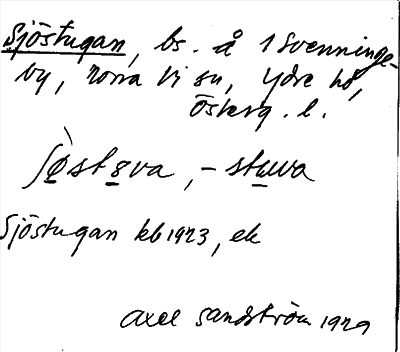 Sjöstugan, bs. å 1 Svenninge-
by, norra Vi sn, Ydre hd,
Österg. l.
ʃø̀stɞva, -stuwa
Sjöstugan kb 1923, ek
Axel Sandström 1929